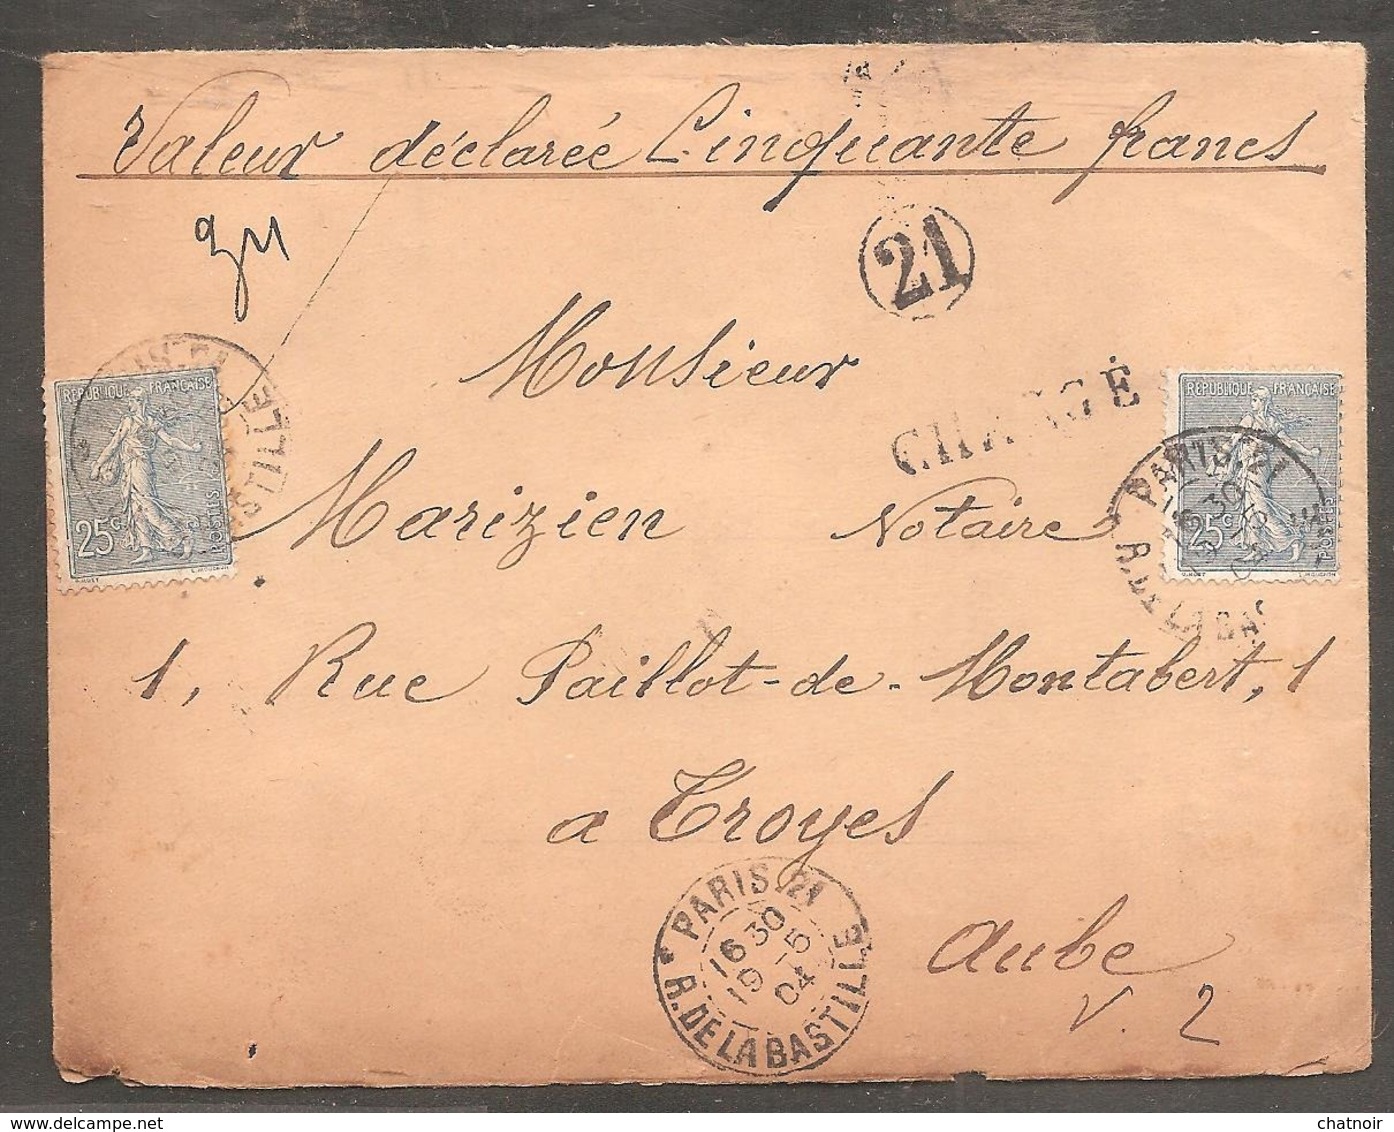 Valeur déclareé Cinquante francs
21
Monsieur
CHARGÉ
REPUBLIQUE FRANÇAISE
25c
POSTES
REPUBLIQUE FRANÇAISE
25c
POSTES
PARIS.21
16 30
19 -5
04
R. DE LA BAS
ASTILLE
Marizien Notaire
1, Rue Paillot-de-Montabert, 1
a Troyes
PARIS.21
16 30
19 -5
04
R. DE LA BASTILLE
Aube
V. 2
chatnoir